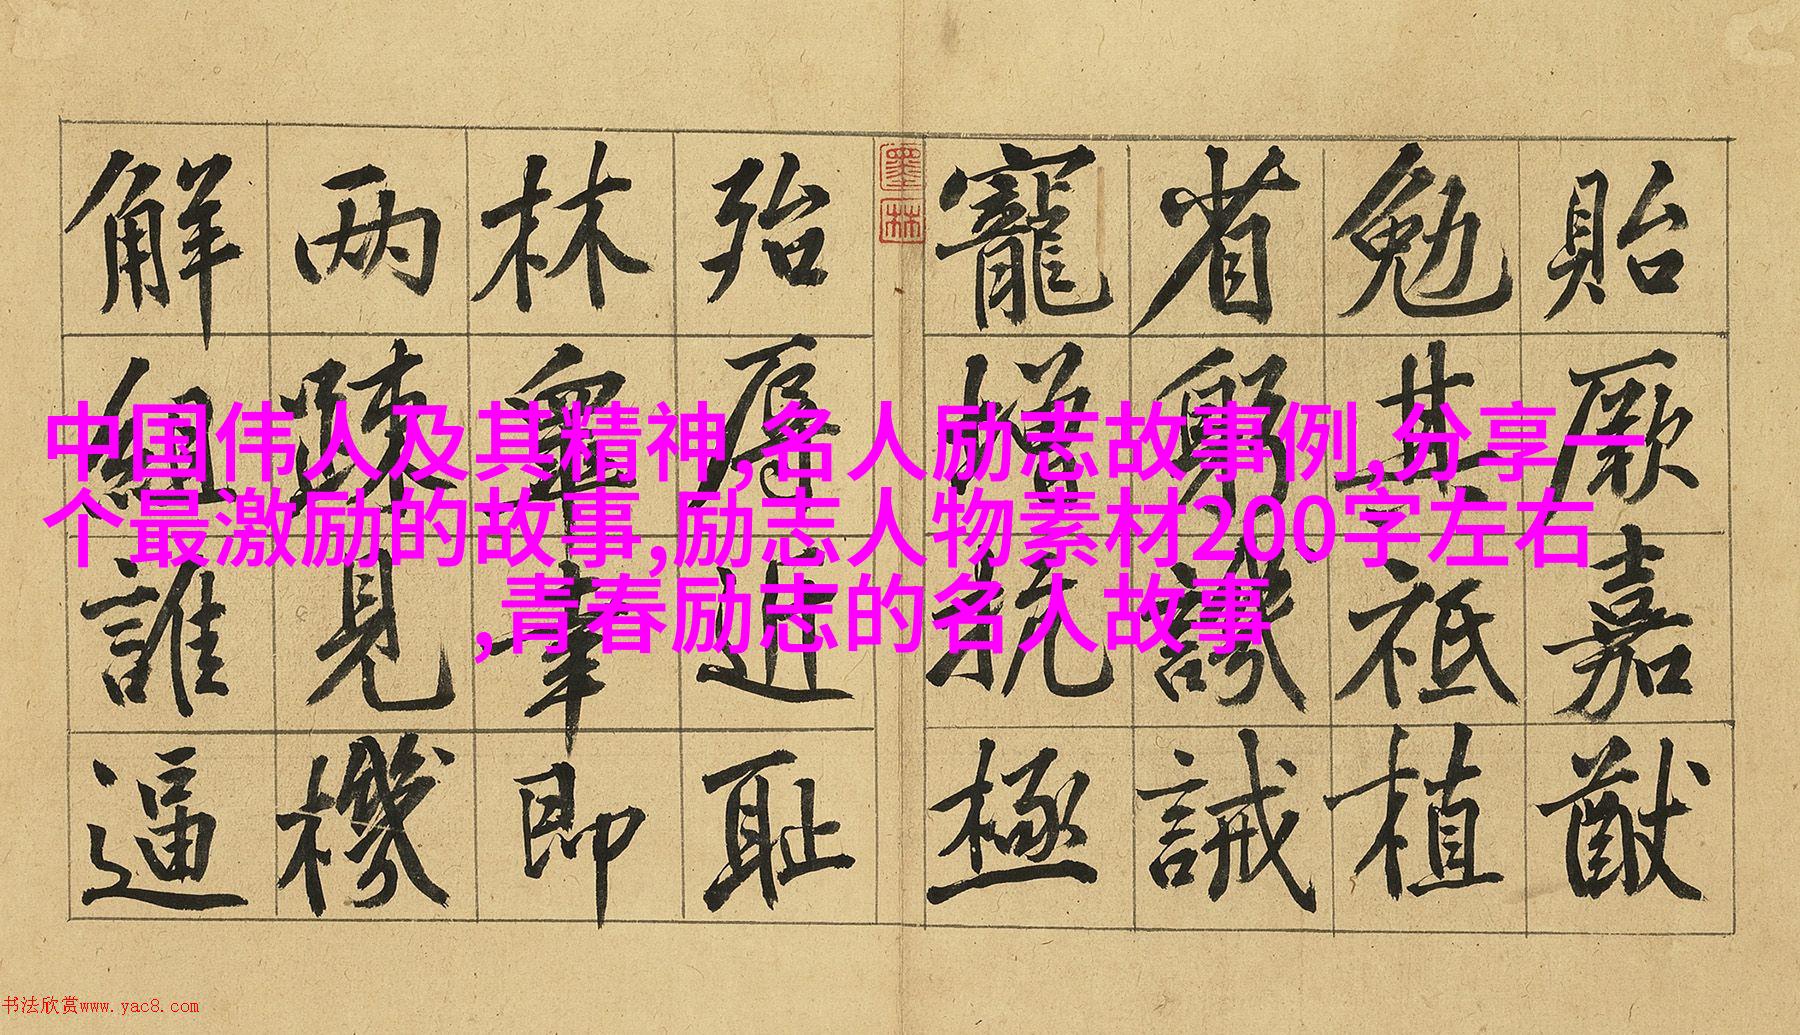 貽厥嘉猷
勉其祗植
省躬譏誡
寵增抗極
墨林
殆辱近耻
林皐幸即
两疎見機
解組誰逼
中国伟人及其精神,名人励志故事例,分享一
个最激励的故事,励志人物素材200字左右
,青春励志的名人故事
书法欣赏www.yac8.com